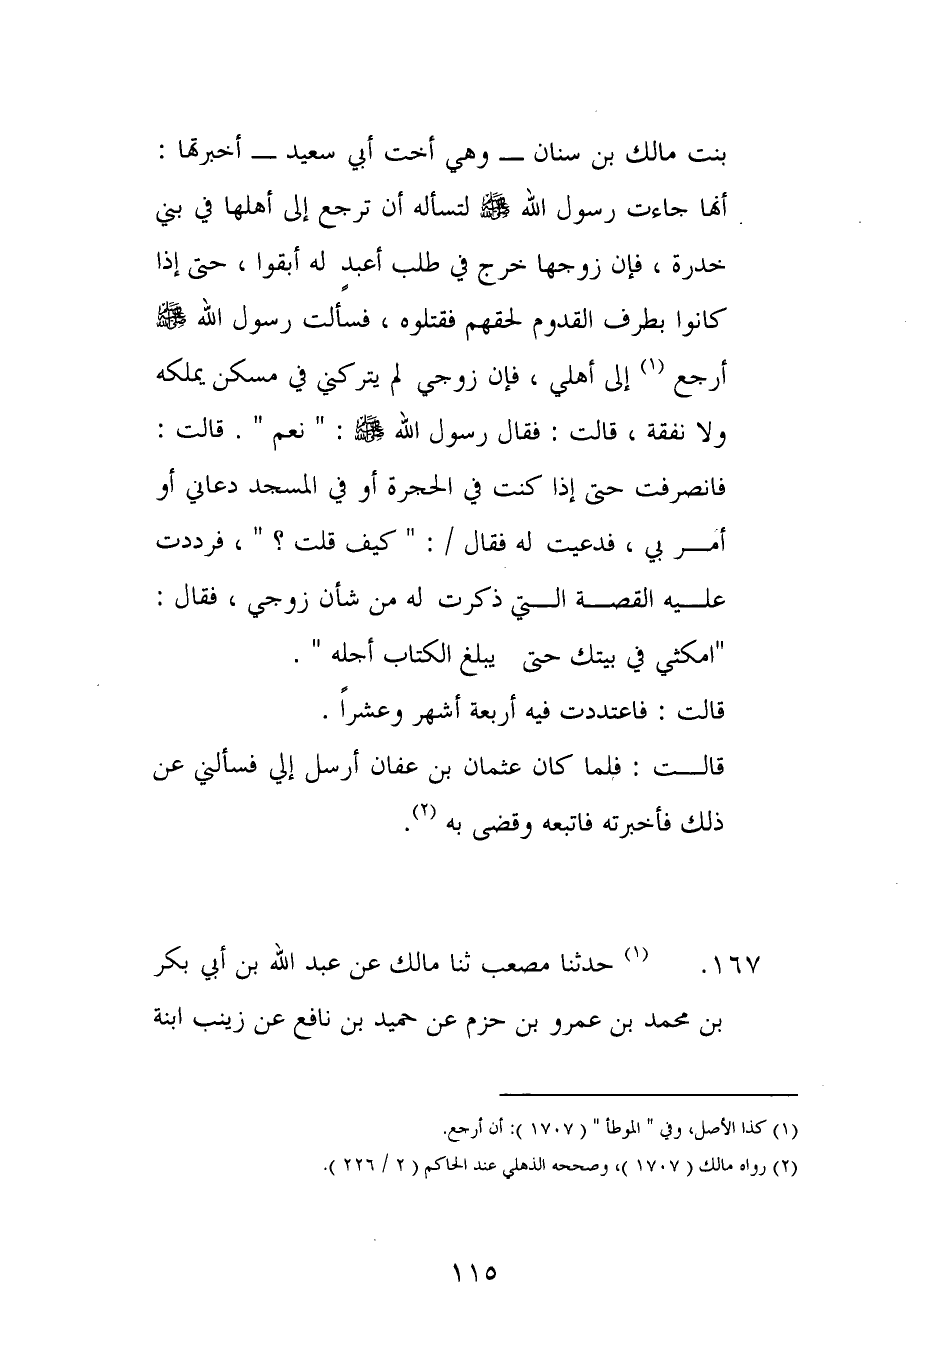 بنت مالك بن سنان ــ وهي أخت أبي سعيد ــ أخبرتها :
أنها جاءت رسول الله ﷺ لتسأله أن ترجع إلى أهلها في بني
خدرة ، فإن زوجها خرج في طلب أعبدٍ له أبقوا ، حتى إذا
كانوا بطرف القدوم لحقهم فقتلوه ، فسألت رسول الله ﷺ
أرجع (١) إلى أهلي ، فإن زوجي لم يتركني في مسكن يملكه
ولا نفقة ، قالت : فقال رسول الله ﷺ : " نعم " . قالت :
فانصرفت حتى إذا كنت في الحجرة أو في المسجد دعاني أو
أمـــر بي ، فدعيت له فقال / : " كيف قلت ؟ " ، فرددت
علـــيه القصـــة الـــتي ذكرت له من شأن زوجي ، فقال :
"امكثي في بيتك حتى يبلغ الكتاب أجله " .
قالت : فاعتددت فيه أربعة أشهر وعشراً .
قالـــت : فلما كان عثمان بن عفان أرسل إلي فسألني عن
ذلك فأخبرته فاتبعه وقضى به (٢).
١٦٧. (١) حدثنا مصعب ثنا مالك عن عبد الله بن أبي بكر
بن محمد بن عمرو بن حزم عن حميد بن نافع عن زينب ابنة
(١) كذا الأصل، وفي " الموطأ " ( ١٧٠٧ ): أن أرجع.
(٢) رواه مالك ( ١٧٠٧ )، وصححه الذهلي عند الحاكم ( ٢ / ٢٢٦ ).
١١٥